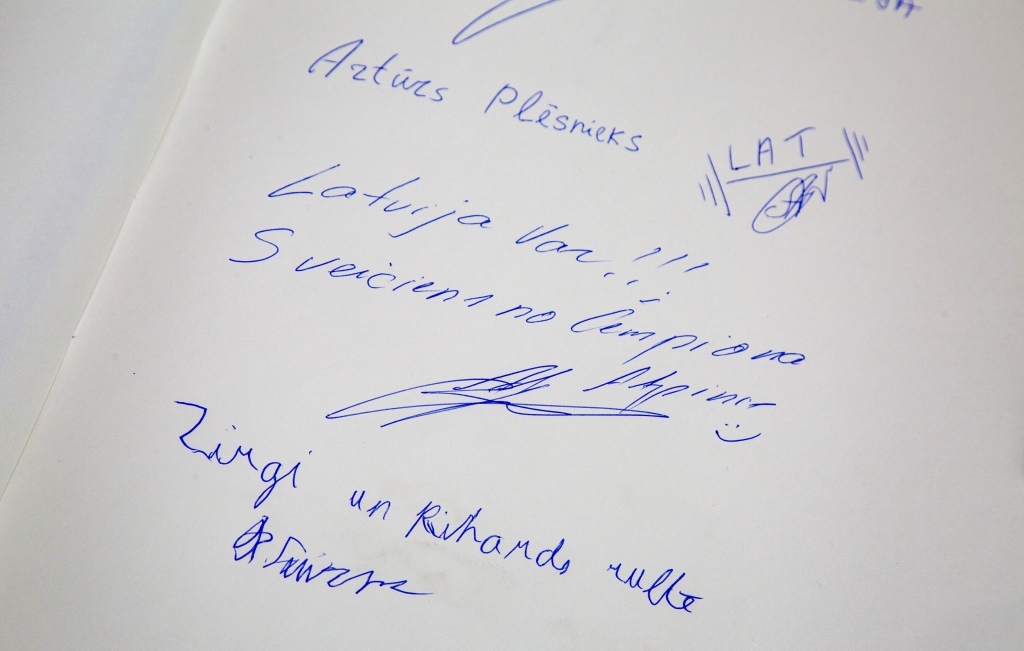 Artūrs Plēsnieks
LAT
Latvija var!!!
Sveiciens no Čempiona
Zirgi un Rihards rullē